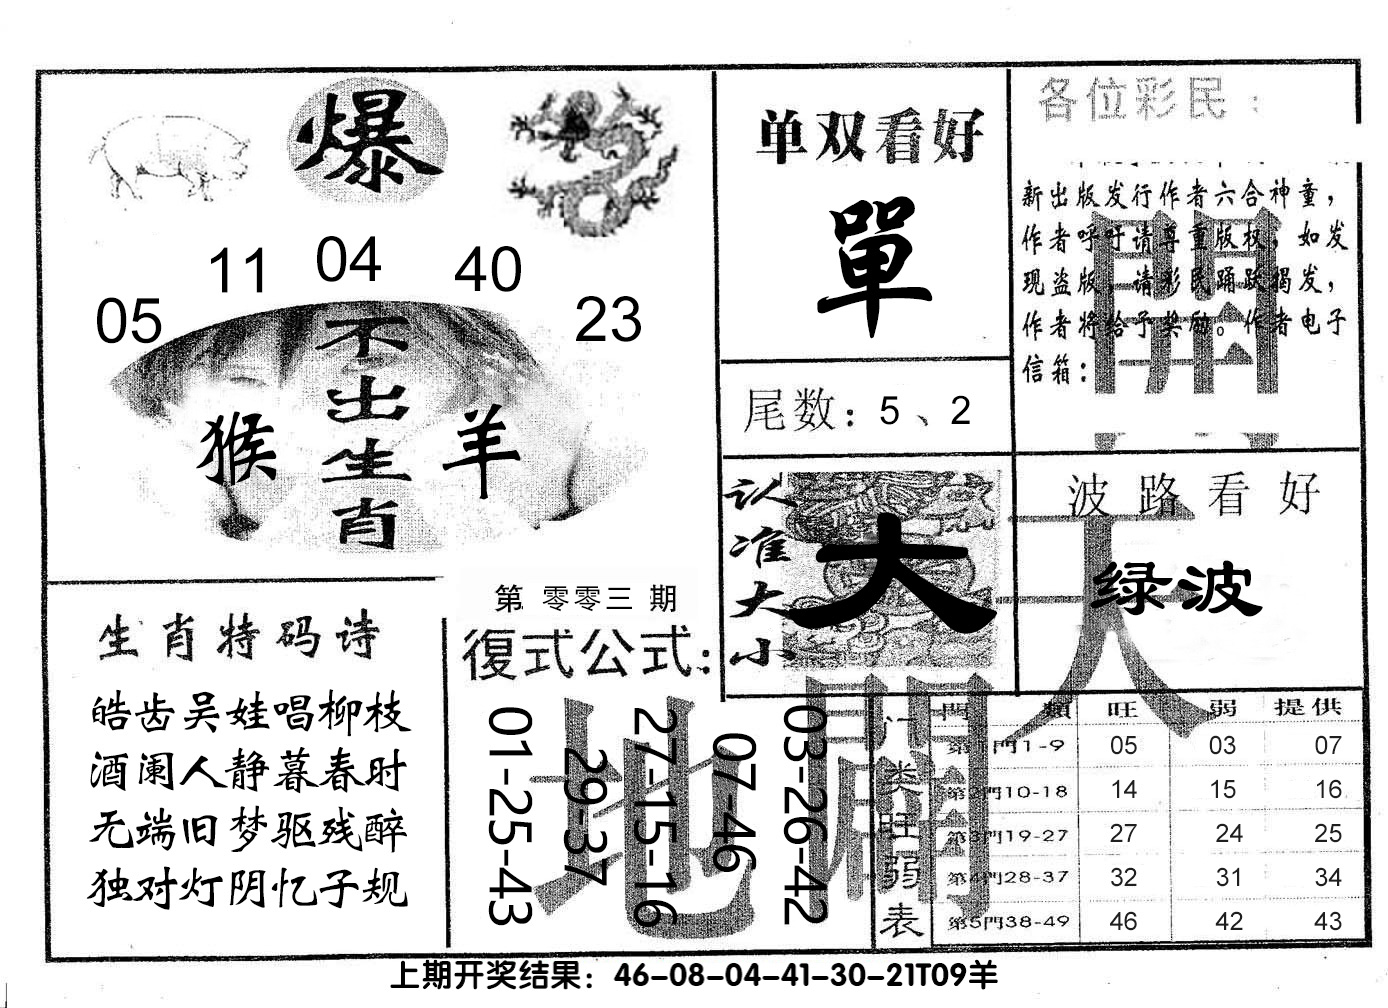 爆
05
11
04
40
23
不出生肖
猴
羊
单双看好
單
尾数：5、2
各位彩民：
新出版发行作者六合神童，
作者呼吁请尊重版权，如发
现盗版，请彩民踊跃揭发，
作者将给予奖励。作者电子
信箱：
認准大小
大
波路看好
绿波
生肖特码诗
皓齿吴娃唱柳枝
酒阑人静暮春时
无端旧梦驱残醉
独对灯阴忆子规
第零零三期
復式公式：
01-25-43
29-37
27-15-16
07-46
03-26-42
天
地
門类旺弱表
門類 旺 弱 提供
第1門1-9 05 03 07
第2門10-18 14 15 16
第3門19-27 27 24 25
第4門28-37 32 31 34
第5門38-49 46 42 43
上期开奖结果：46-08-04-41-30-21T09羊